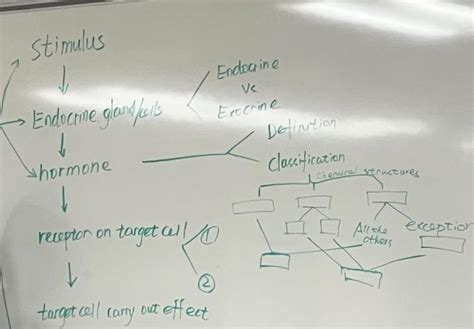 Stimulus
Endocrine gland/cells
Endocrine
Vs
Exocrine
hormone
Definition
Classification
chemical structures
All the
others
exception
receptor on target cell
①
②
target cell carry out effect